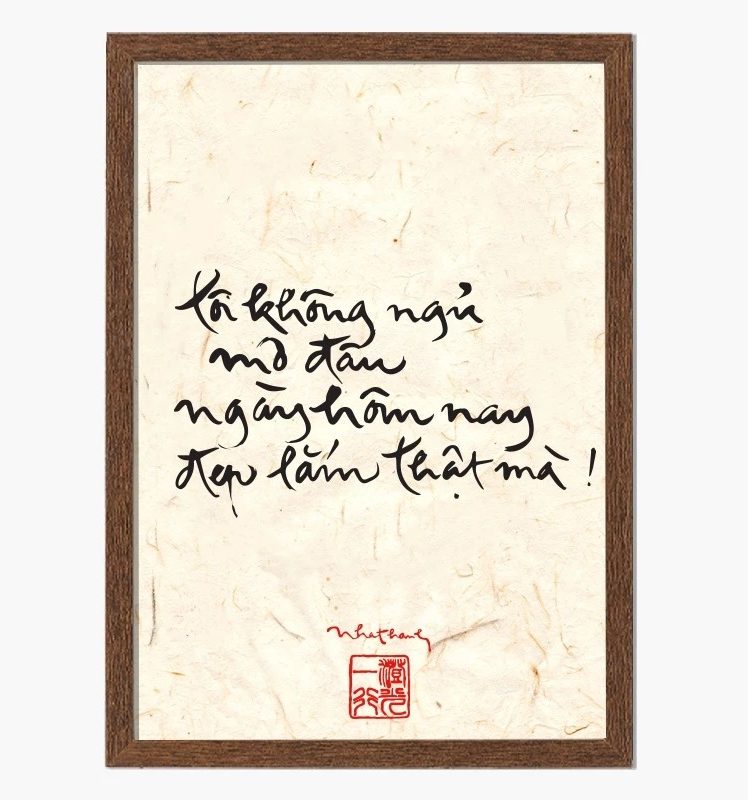 tôi không ngủ
mơ đâu
ngày hôm nay
đẹp lắm thật mà !
nhathanh